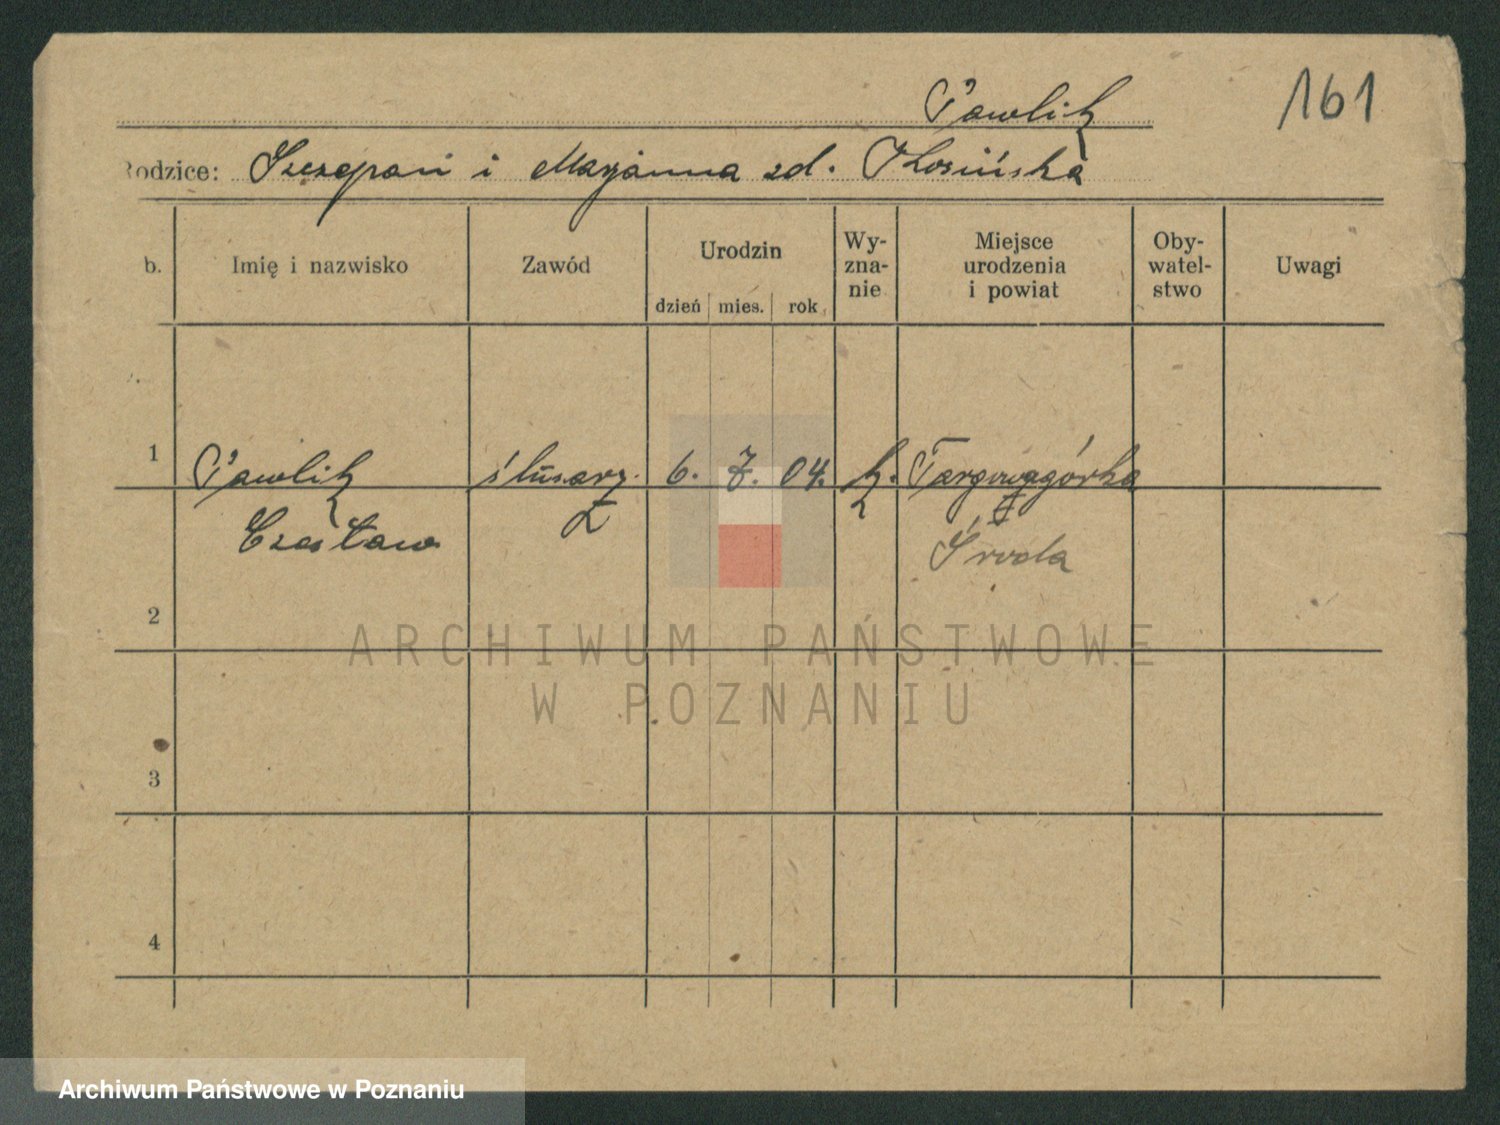 161
Pawlik
Rodzice: Szczepan i Maryanna zd. Kłosińska
b. Imię i nazwisko Zawód Urodzin Wy-zna-nie Miejsce urodzenia i powiat Oby-watel-stwo Uwagi
dzień mies. rok
1 Pawlik ślusarz 6. 7. 04. k. Targowagórka
Czesław Środa
2
ARCHIWUM PAŃSTWOWE
W POZNANIU
3
4
Archiwum Państwowe w Poznaniu